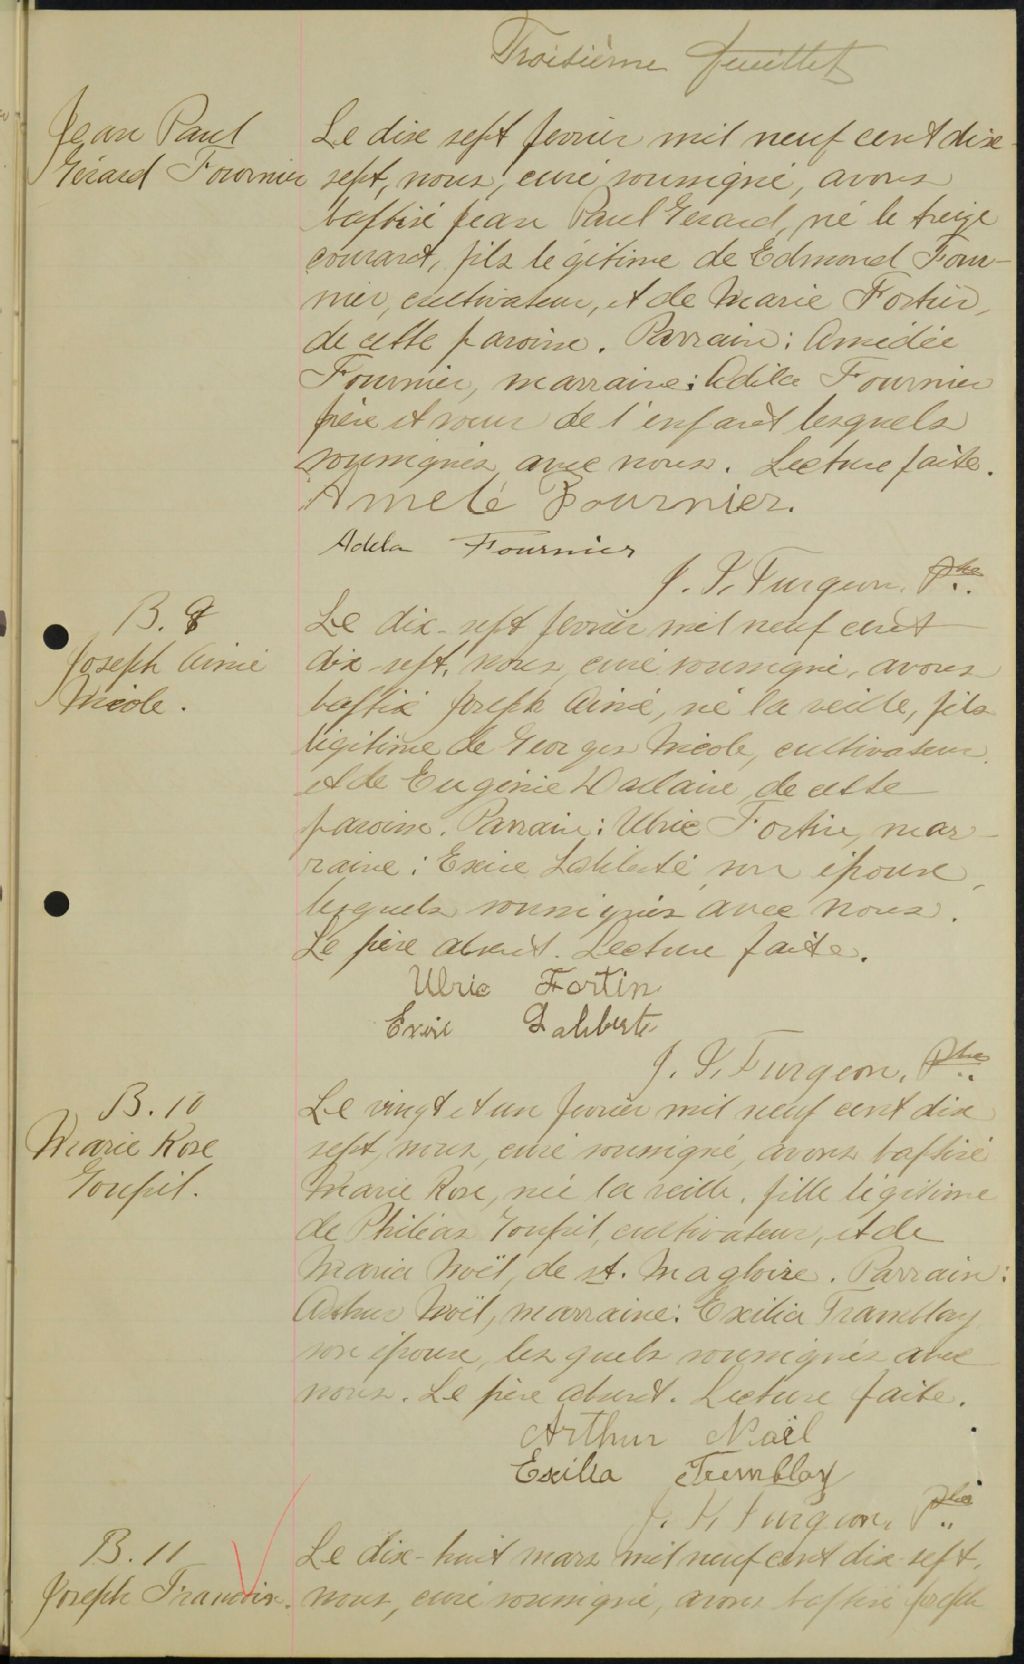 Troisième feuillet
Jean Paul
Gérard Fournier
Le dix sept février mil neuf cent dix-
sept, nous, curé soussigné, avons
baptisé Jean Paul Gérard, né le treize
courant, fils légitime de Edmond Four-
nier, cultivateur, et de Marie Fortier,
de cette paroisse. Parrain: Amédée
Fournier, marraine: Adila Fournier
frère et soeur de l'enfant lesquels
soussignés avec nous. Lecture faite.
Amelé Fournier.
Adela Fournier
J. Turgeon, Ptre.
B. 9
Joseph Aimé
Nicole.
Le dix-sept février mil neuf cent
dix-sept, nous, curé soussigné, avons
baptisé Joseph Aimé, né la veille, fils
légitime de Georges Nicole, cultivateur,
et de Eugénie Dallaire, de cette
paroisse. Parrain: Ulric Fortin, mar-
raine: Exire Laliberté, son épouse,
lesquels soussignés avec nous.
Le père absent. Lecture faite.
Ulric Fortin
Exire Laliberte
J. Turgeon, Ptre.
B. 10
Marie Rose
Goupil.
Le vingt et un février mil neuf cent dix
sept, nous, curé soussigné, avons baptisé
Marie Rose, née la veille, fille légitime
de Philéas Goupil, cultivateur, et de
Maria Noël, de st. Magloire. Parrain:
Arthur Noël, marraine: Exilia Tramblay
son épouse, lesquels soussignés avec
nous. Le père absent. Lecture faite.
Arthur Naël
Exilia Tremblay
J. Turgeon, Ptre.
B. 11
Joseph Francois.
Le dix-huit mars mil neuf cent dix-sept,
nous, curé soussigné, avons baptisé Joseph